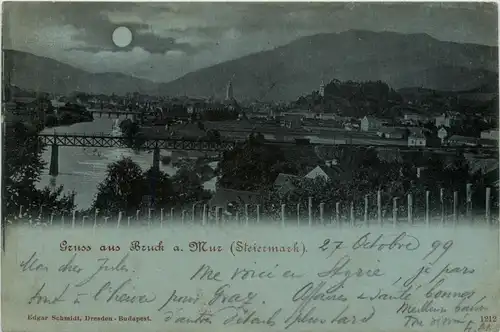 Gruss aus Bruck a. Mur (Steiermark). 27 Octobre 99
Mon cher Jules. Me voici en Styrie, je pars
tout à l'heure pour Graz. Affaires & santé bonnes
d'autres détails plus tard Meilleurs baisers
mon vieux
Edgar Schmidt, Dresden-Budapest. 1212